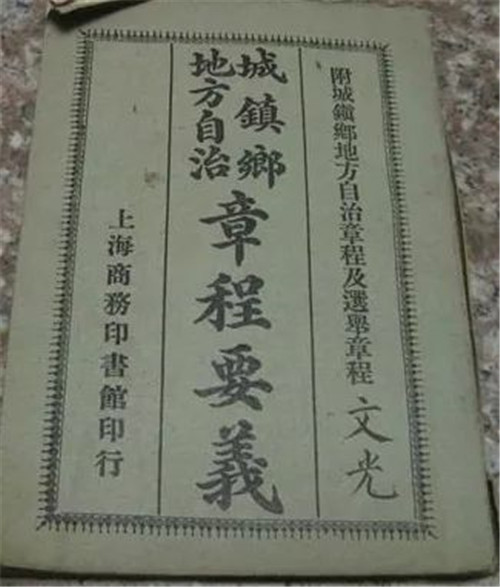 附城鎮鄉地方自治章程及選舉章程
文光
城鎮鄉
地方自治
章程要義
上海商務印書館印行